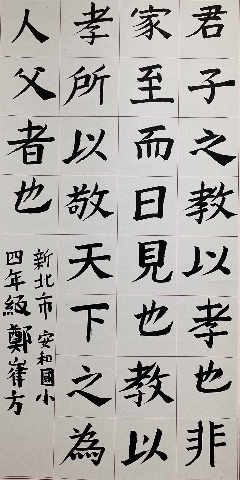 君子之教以孝也非
家至而日見也教以
孝所以敬天下之為
人父者也
新北市安和國小
四年級鄭崔方